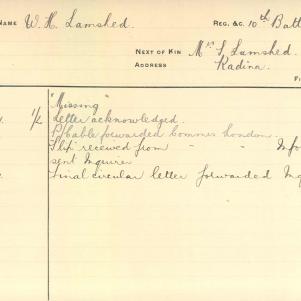 NAME W. H. Lamshed. REG. &C. 10th Batt
NEXT OF KIN Mrs L Lamshed.
ADDRESS Kadina.
"Missing"
1/2 Letter acknowledged.
Cable forwarded Commis London.
Slip received from " " Info
sent Inquirer
Final circular letter forwarded Inq